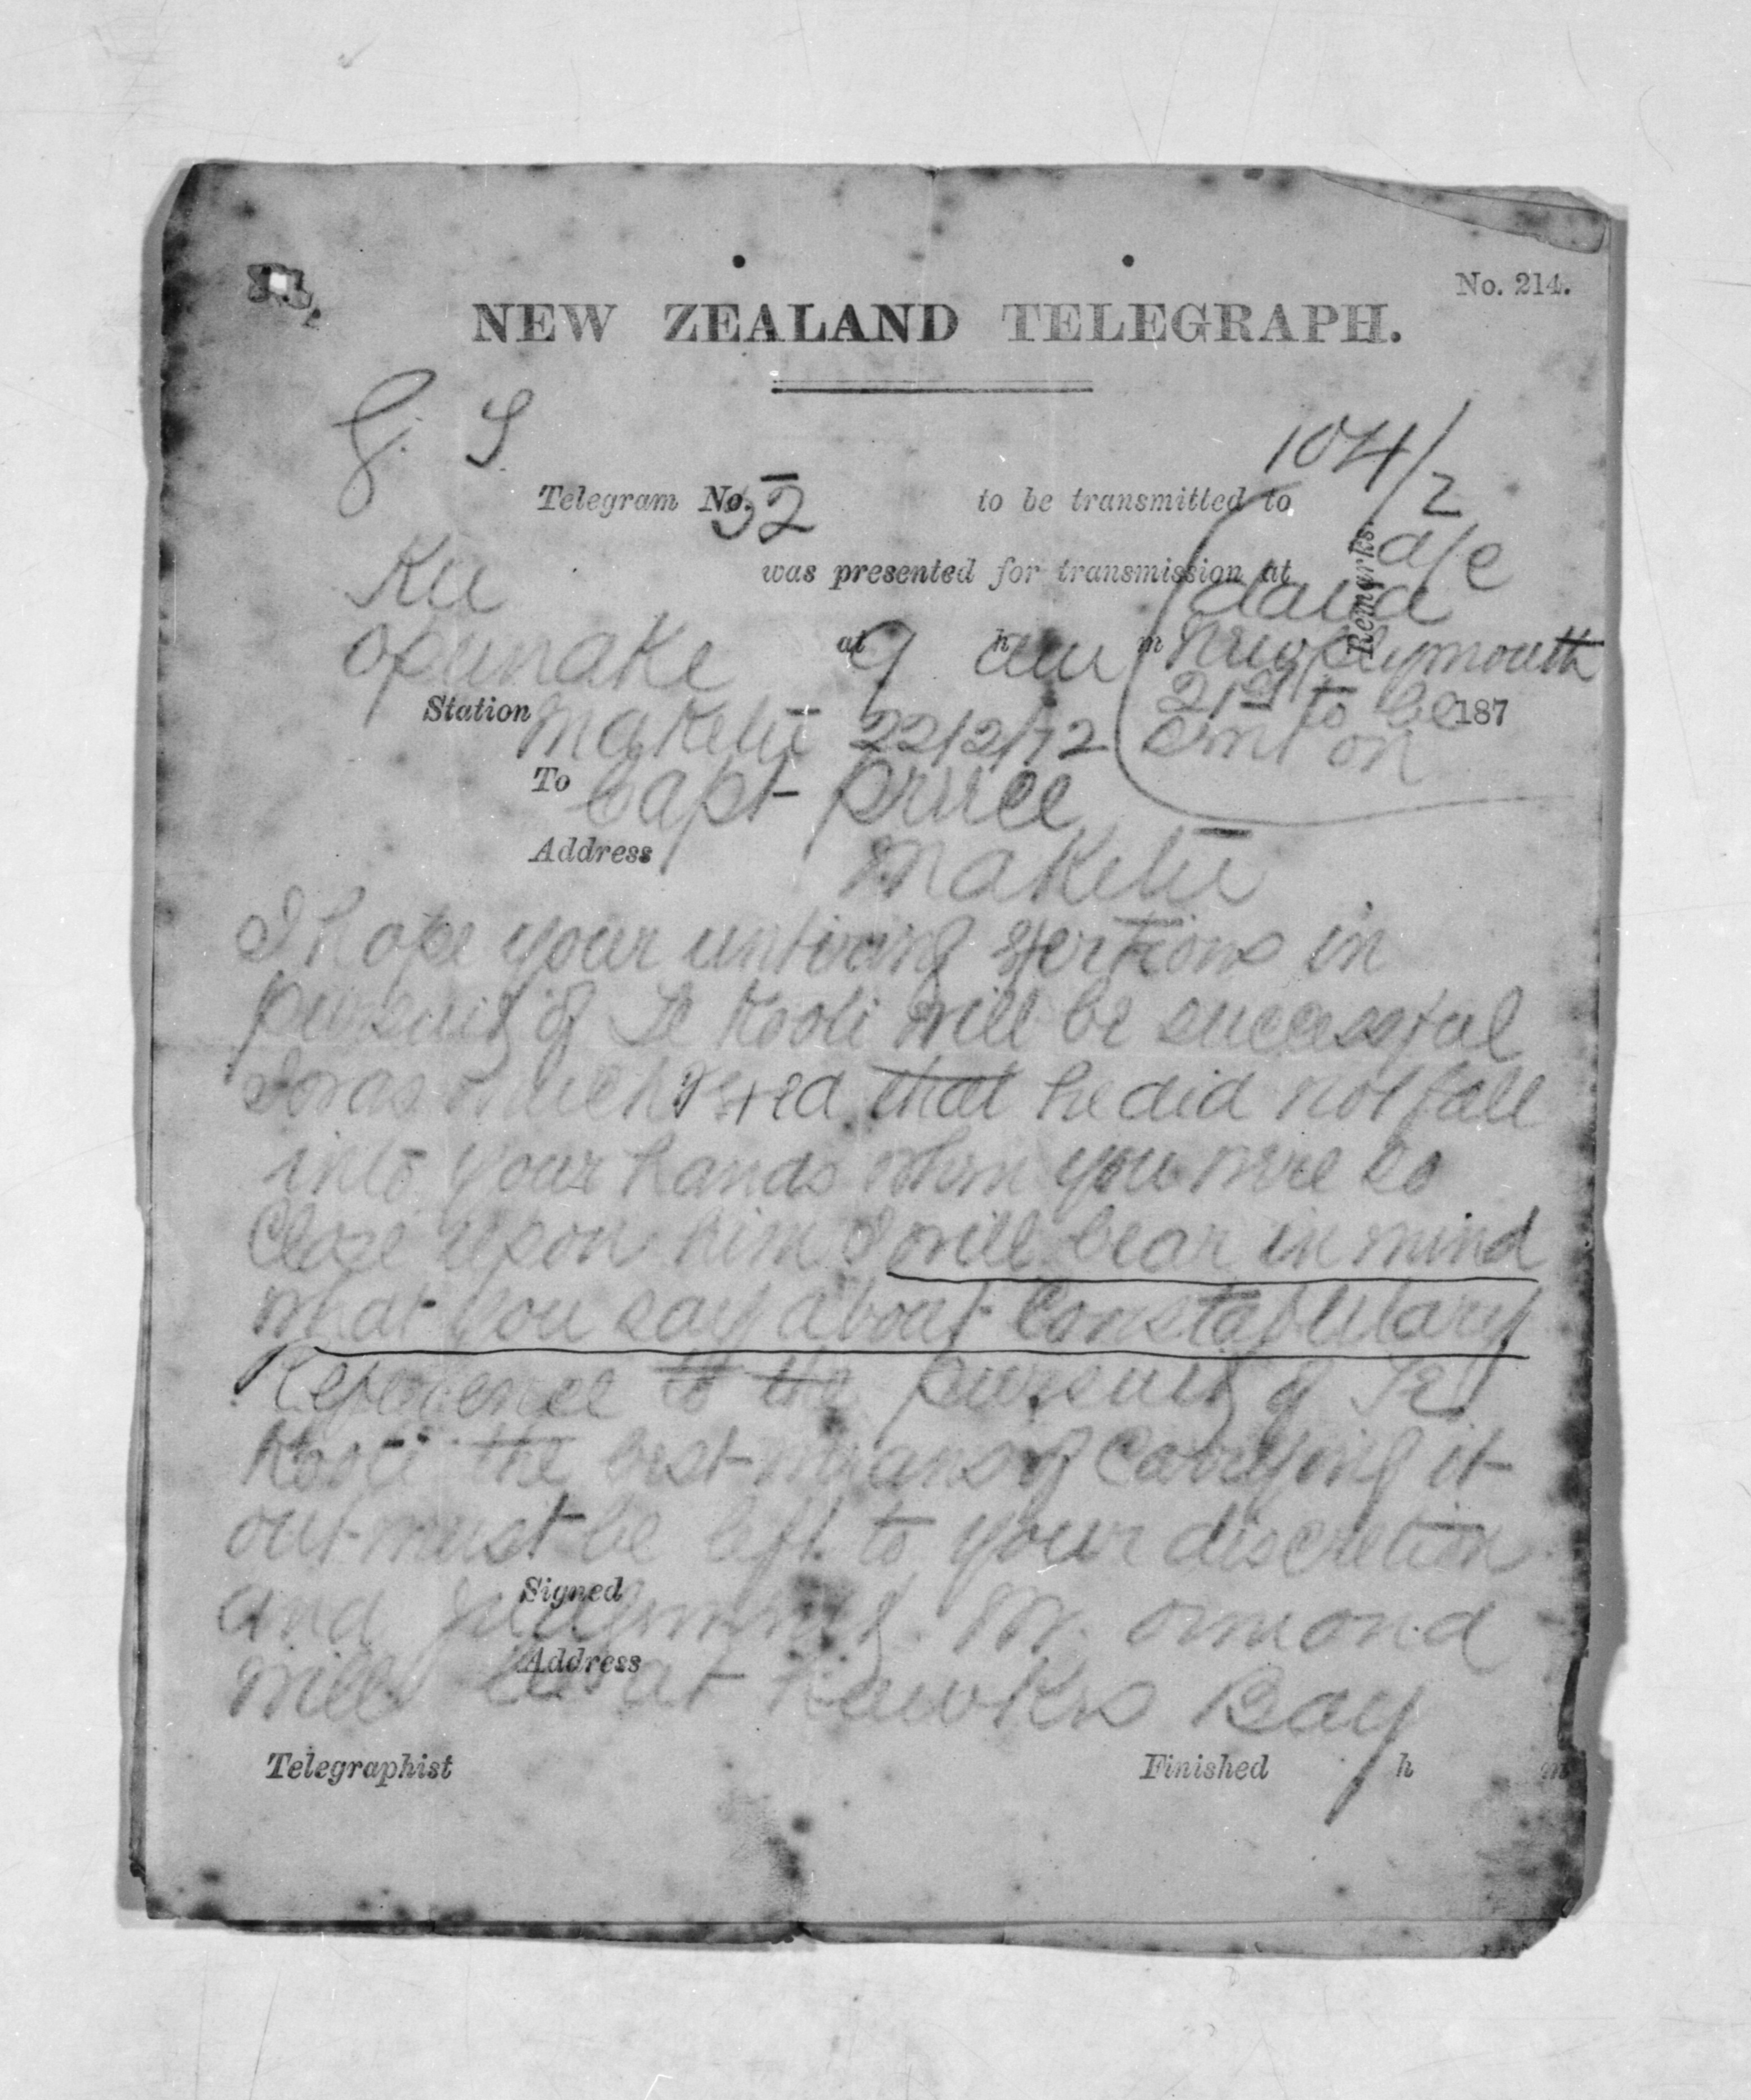 No. 214.
NEW ZEALAND TELEGRAPH.
G. S.
104/2
Telegram No. 52 to be transmitted to
Remarks
a/c
was presented for transmission at
dated
Opunake at 9 h am m New Plymouth
21st to be 187
Station Maketu 22/2/72 on
To Capt Preece
Address Maketu
I hope your untiring exertions in
pursuit of Te Kooti will be successful
I was much vexed that he did not fall
into your hands when you were so
close upon him I will bear in mind
what you say about Constabulary
Reference to the pursuit of Te
Kooti the best means of carrying it
out must be left to your discretion
Signed
and judgment Mr. Ormond
Address
will be at Hawkes Bay
Telegraphist Finished h m